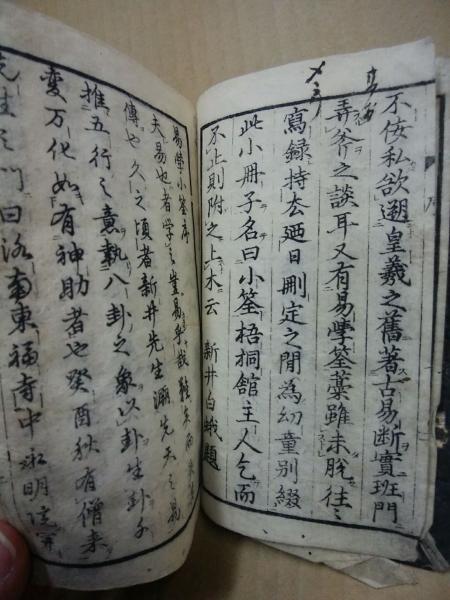 不佞私欲遡皇羲之舊著古易斷實班門
弄斧之談耳又有易學筌藁雖未脫往〻
寫録持去廼日刪定之間為幼童別綴
此小冊子名曰小筌梧桐館主人乞而
不止則附之上木云　新井白蛾題
易學小筌序
夫易也者学之豈易乎哉
傳也久之頃者新井先生溯先天之易
推五行之意執八卦之象以卦生卦千
変万化如有神助者也癸酉秋有僧来
先生之門曰洛南東福寺中永明院